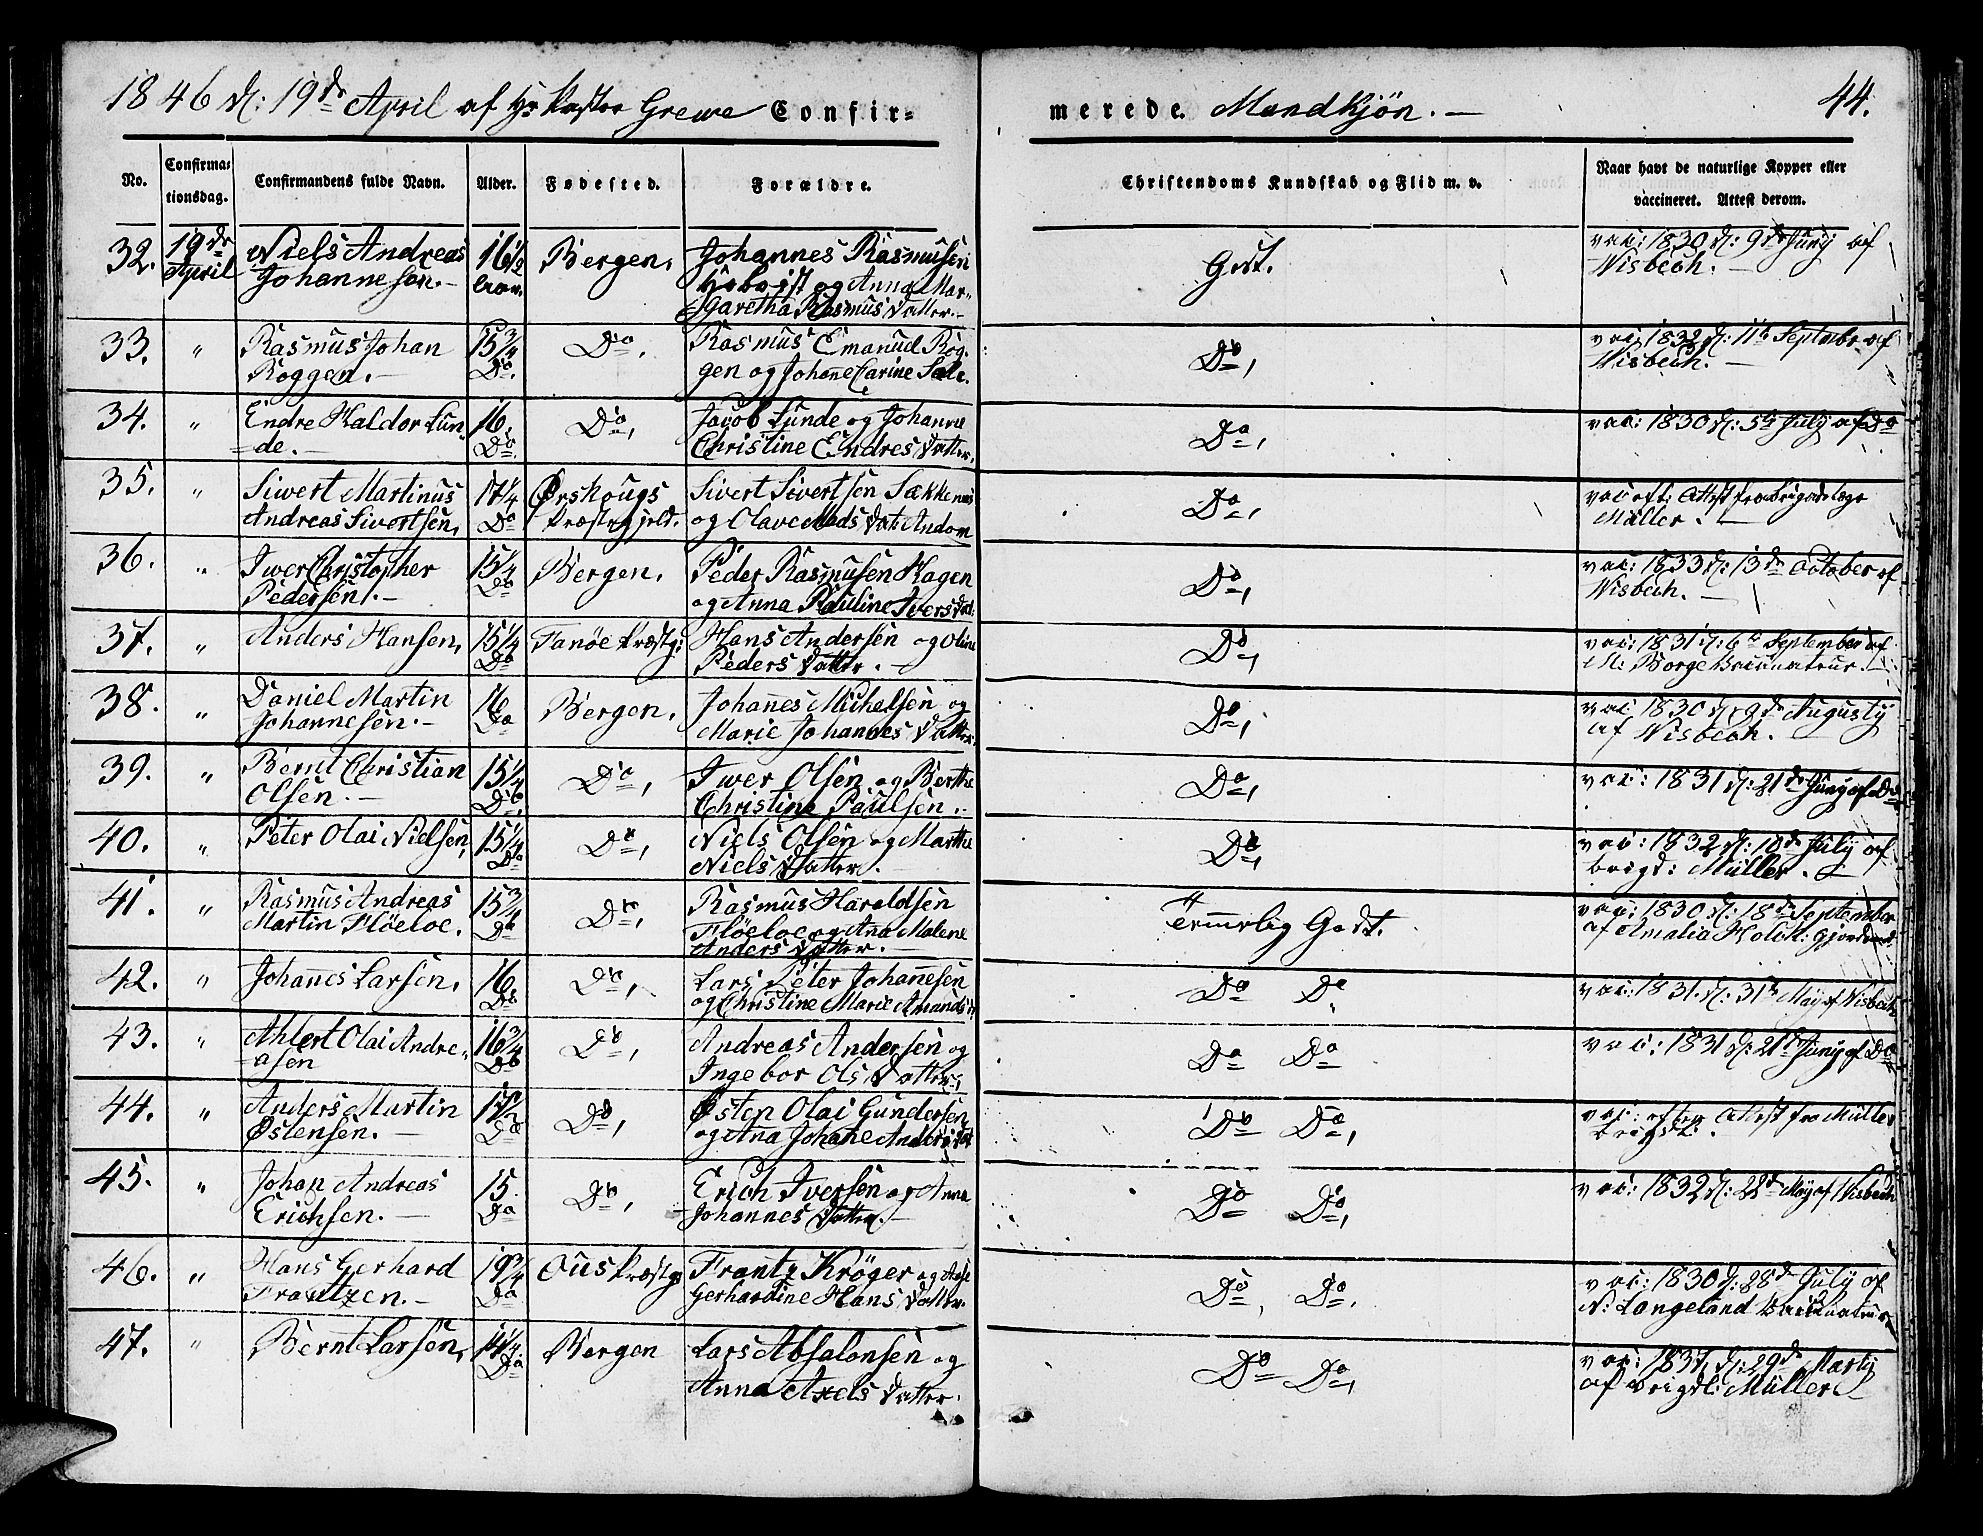 1846 d: 19de April af Hr Pastor Grewe Confir=
merede. Mandkjön. — 44.
No. Confirma=tionsdag. Confirmandens fulde Navn. Alder. Fødested. Forældre. Christendoms Kundskab og Flid m. v. Naar havt de naturlige Kopper eller vaccineret. Attest derom.
32. 19de Niels Andreas 16½ Bergen, Johannes Rasmusen Godt. vac: 1830 d: 9de Juny af
April Johannesen. — og Anna Mar= Wisbech. —
garetha Rasmus Datter. —
33. " Rasmus Johan 15¾ Do, Rasmus Emanuel Rog= Do, vac: 1832 d: 11te Septembr af
Roggen. — Do. gen og Johanne Carine Sele. Wisbech. —
34. " Endre Haldor Lun= 16. Do, Jacob Lunde og Johanne Do, vac: 1830 d: 5te July af Do
=de. — Do Christine Endres Datter,
35. " Siwert Martinus 17¼ Ørskougs Sivert Sivertsen Do, vac: eft: Attest fra Brigadelæge
Andreas Sivertsen, Do Præstegjeld. og Olave Mads Müller. —
36. " Iwer Christopher 15¼ Bergen, Peder Rasmusen Hagen Do, vac: 1833 d: 13de October af
Pedersen. — Do og Anna Pauline Ivers Dat. Wisbech. —
37. " Anders Hansen, 15¼ Fanöe Præstg: Hans Andersen og Oline Do, vac: 1831 d: 6te September af
Do Peders Datter. — M: Borge Vaccinateur.
38. " Daniel Martin 16 Bergen, Johannes Michelsen og Do, vac: 1830 d: 9de Augusty
Johannesen. — Do Marie Johannes Datter, af Wisbech.
39. " Bernt Christian 15¼ Do, Iwer Olsen og Berthe Do, vac: 1831 d: 21de Juny af Do
Olsen. — Do, Christine Paulsen.
40. " Peter Olai Nielsen, 15¼ Do, Niels Olsen og Marthe Do, vac: 1832 d: 10de July af
Do Niels Datter. brigd: Müller.
41. " Rasmus Andreas 15¾ Do, Rasmus Haraldsen Temmelig Godt. vac: 1830 d: 18de September
Martin Flöeloe. Do Flöeloe og Ana Malene af Amalia Holck: Gjordemd:
Anders Datter. —
42. " Johannes Larsen, 16. Do, Lars Peter Johannesen Do Do, vac: 1831. d: 31te May af Wisbech
Do og Christine Marie Amunds
43. " Ahlert Olai Andre= 16¾ Do, Andreas Andersen og Do Do vac: 1831 d: 21de Juny af Do
=asen Do Ingebor Ols Datter,
44. " Anders Martin Do, Østen Olai Gundersen Do Do, vac: efter Attest fra Müller
Østensen. — Do og Ana Johane Anders Dat brigdl:
45. " Johan Andreas 15. Do, Erich Iversen og Anna Do Do, vac: 1832 d: 22de May af Wisbech
Erichsen. — Do Johannes Datter. —
46. " Hans Gerhard 19¾ Ous Præstg Frantz Kröger og Do, Do. vac: 1830 d: 28de July af
Frantzen. — Do Gerhardine Hans Datter. N: Langeland Vaccinateur
47. " Bernt Larsen, 14¼ Bergen Lars Absalonsen og Do Do, vac: 1837 d: 29de Marty
Do Anna Axels Datter. af brigdl: Müller